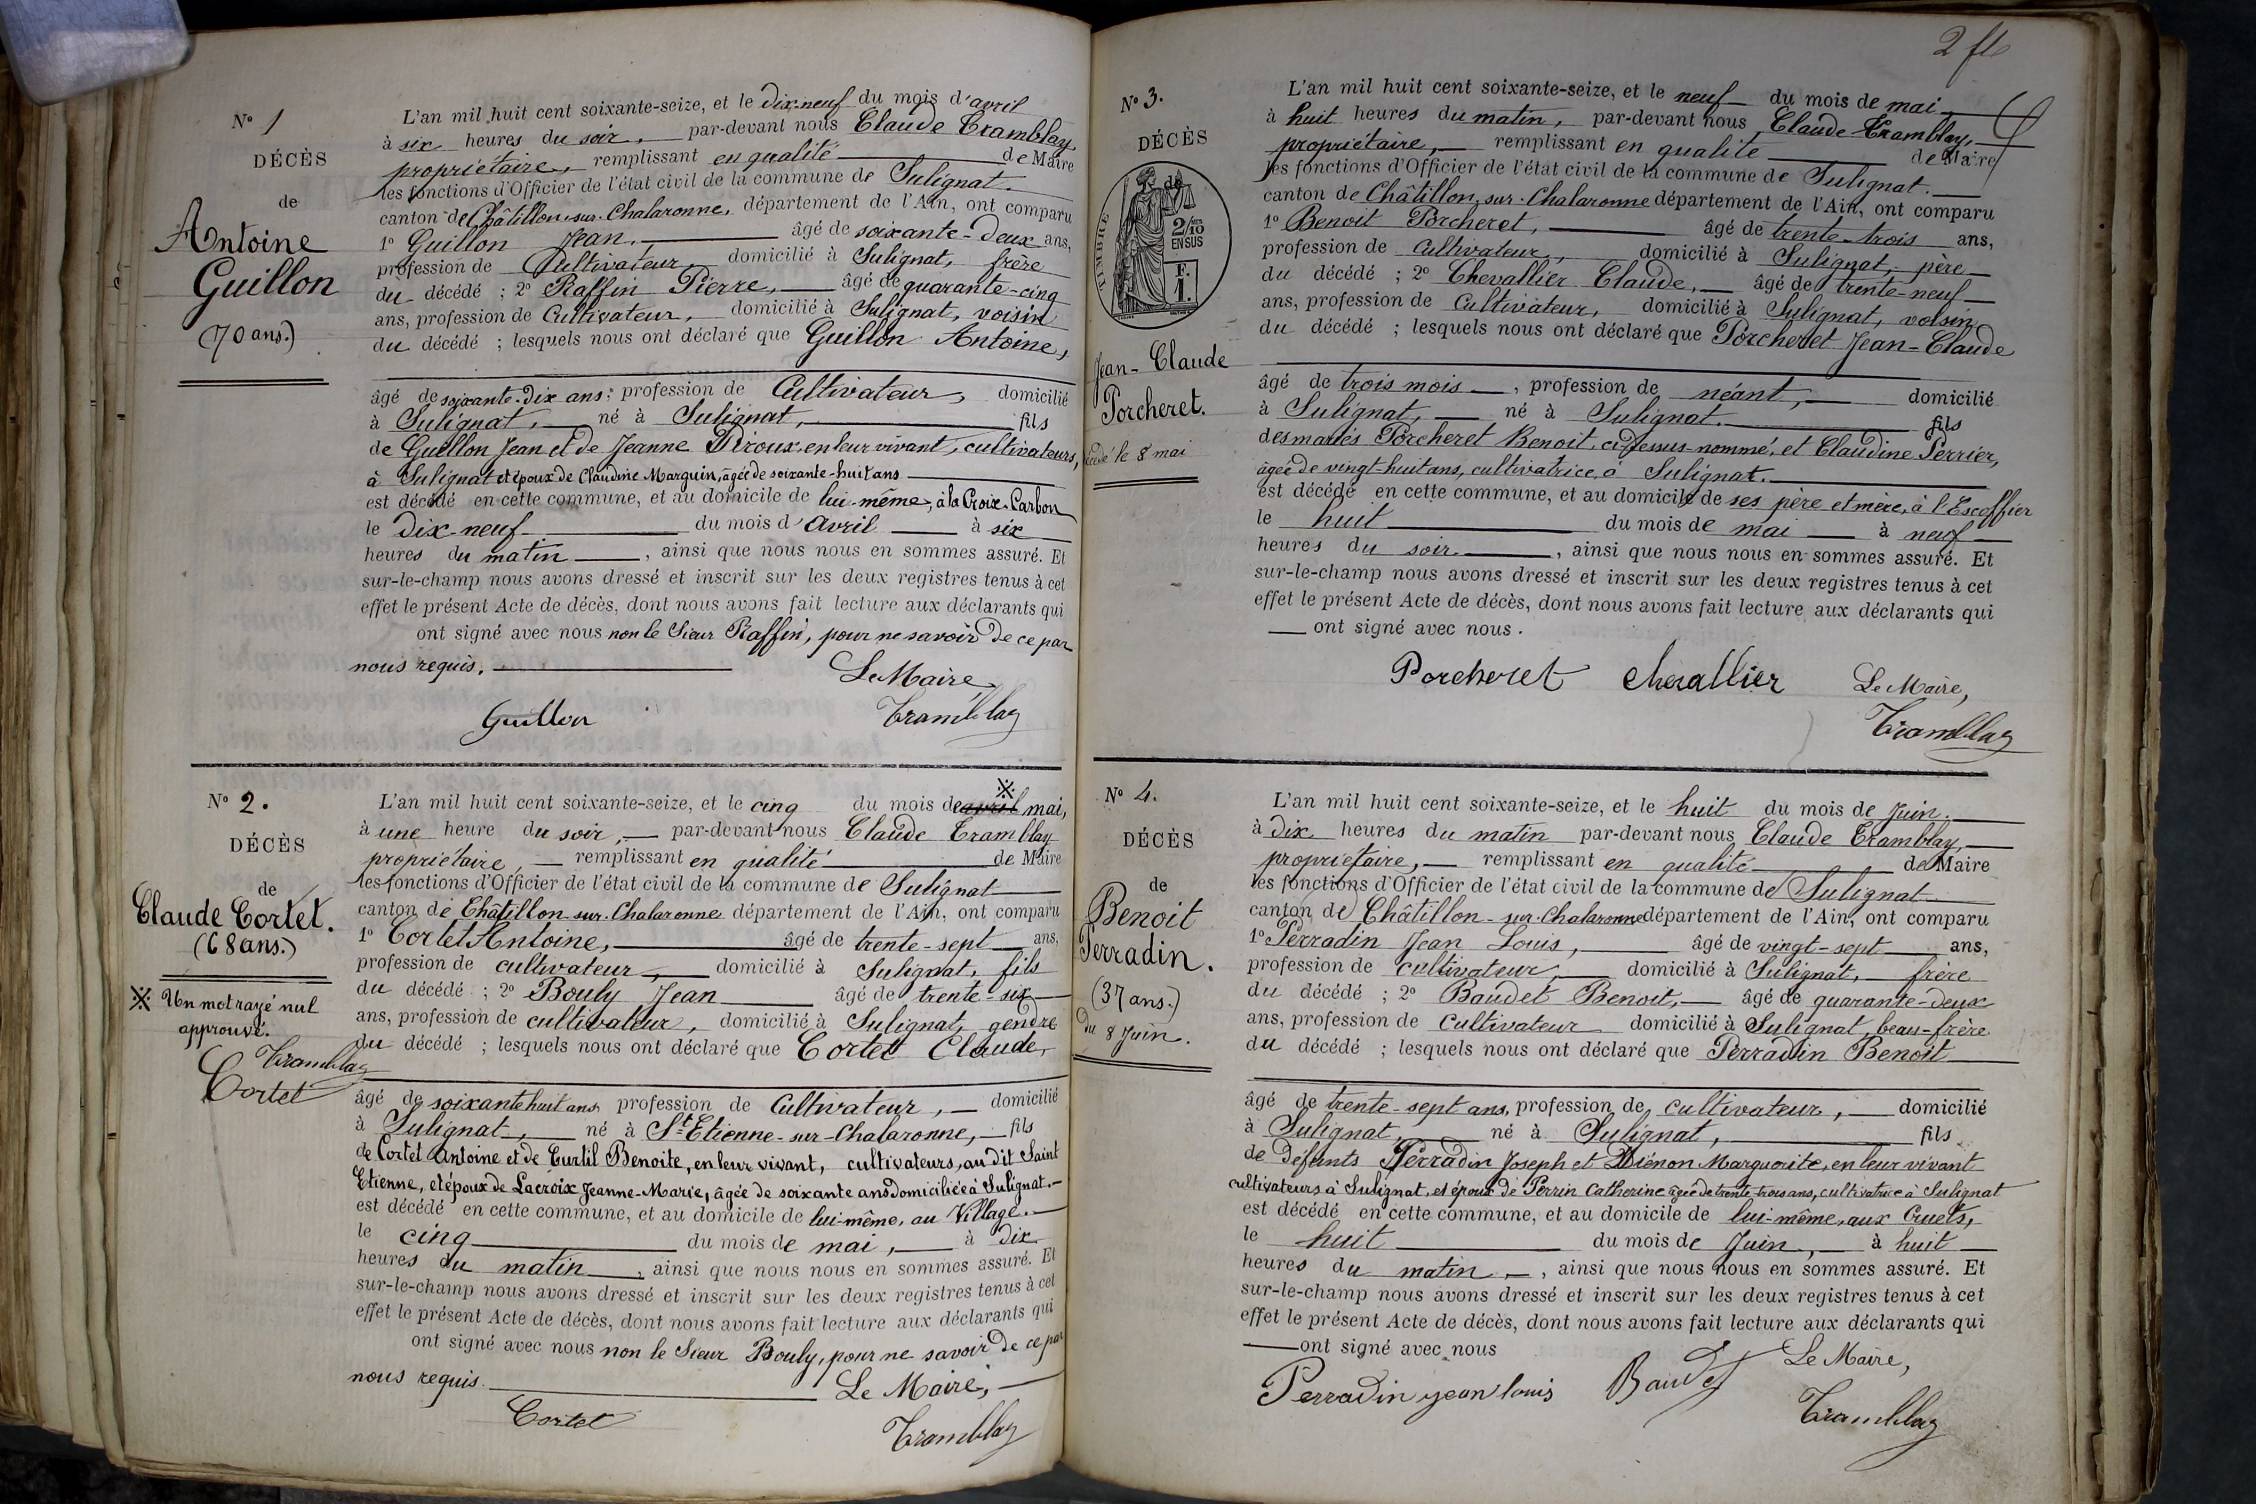 N° 1
DÉCÈS
de
Antoine
Guillon
(70 ans.)
L'an mil huit cent soixante-seize, et le dix-neuf du mois d'avril
à six heures du soir, par-devant nous Claude Tramblay,
propriétaire, remplissant en qualité de Maire
les fonctions d'Officier de l'état civil de la commune de Sulignat.
canton de Châtillon-sur-Chalaronne, département de l'Ain, ont comparu
1° Guillon Jean, âgé de soixante-deux ans,
profession de Cultivateur, domicilié à Sulignat, frère
du décédé ; 2° Raffin Pierre, âgé de quarante-cinq
ans, profession de Cultivateur, domicilié à Sulignat, voisin
du décédé ; lesquels nous ont déclaré que Guillon Antoine,
âgé de soixante-dix ans, profession de Cultivateur, domicilié
à Sulignat, né à Sulignat, fils
de Guillon Jean et de Jeanne Diroux, en leur vivant, cultivateurs,
à Sulignat et époux de Claudine Marguin, âgée de soixante-huit ans
est décédé en cette commune, et au domicile de lui-même, à la Croix-Carbon
le dix-neuf du mois d'avril à six
heures du matin, ainsi que nous nous en sommes assuré. Et
sur-le-champ nous avons dressé et inscrit sur les deux registres tenus à cet
effet le présent Acte de décès, dont nous avons fait lecture aux déclarants qui
ont signé avec nous non le Sieur Raffin, pour ne savoir de ce par
nous requis.
Le Maire,
Guillon Tramblay
N° 2.
DÉCÈS
de
Claude Cortet.
(68 ans.)
※ Un mot rayé nul
approuvé.
Tramblay
Cortet
※
L'an mil huit cent soixante-seize, et le cinq du mois de avril mai,
à une heure du soir, par-devant nous Claude Tramblay
propriétaire, remplissant en qualité de Maire
les fonctions d'Officier de l'état civil de la commune de Sulignat
canton de Châtillon-sur-Chalaronne département de l'Ain, ont comparu
1° Cortet Antoine, âgé de trente-sept ans,
profession de cultivateur, domicilié à Sulignat, fils
du décédé ; 2° Bouly Jean âgé de trente-six
ans, profession de cultivateur, domicilié à Sulignat, gendre
du décédé ; lesquels nous ont déclaré que Cortet Claude,
âgé de soixante huit ans profession de Cultivateur, domicilié
à Sulignat, né à St Etienne-sur-Chalaronne, fils
de Cortet Antoine et de Curtil Benoite, en leur vivant, cultivateurs, au dit Saint
Etienne, et époux de Lacroix Jeanne-Marie, âgée de soixante ans domiciliée à Sulignat.
est décédé en cette commune, et au domicile de lui-même, au Village.
le cinq du mois de mai, à dix
heures du matin, ainsi que nous nous en sommes assuré. Et
sur-le-champ nous avons dressé et inscrit sur les deux registres tenus à cet
effet le présent Acte de décès, dont nous avons fait lecture aux déclarants qui
ont signé avec nous non le Sieur Bouly, pour ne savoir de ce par
nous requis.
Le Maire,
Cortet Tramblay
N° 3.
DÉCÈS
de
TIMBRE
2/10
EN SUS
F.
1.
Jean-Claude
Porcheret.
le 8 mai
L'an mil huit cent soixante-seize, et le neuf du mois de mai
à huit heures du matin, par-devant nous Claude Tramblay,
propriétaire, remplissant en qualité de Maire
les fonctions d'Officier de l'état civil de la commune de Sulignat.
canton de Châtillon-sur-Chalaronne département de l'Ain, ont comparu
1° Benoit Porcheret, âgé de trente-trois ans,
profession de Cultivateur, domicilié à Sulignat, père
du décédé ; 2° Chevallier Claude, âgé de trente-neuf
ans, profession de Cultivateur, domicilié à Sulignat, voisin
du décédé ; lesquels nous ont déclaré que Porcheret Jean-Claude
âgé de trois mois, profession de néant, domicilié
à Sulignat, né à Sulignat. fils
des mariés Porcheret Benoit, ci-dessus-nommé, et Claudine Perrier,
âgée de vingt-huit ans, cultivatrice, à Sulignat.
est décédé en cette commune, et au domicile de ses père et mère, à l'Escoffier
le huit du mois de mai à neuf
heures du soir, ainsi que nous nous en sommes assuré. Et
sur-le-champ nous avons dressé et inscrit sur les deux registres tenus à cet
effet le présent Acte de décès, dont nous avons fait lecture aux déclarants qui
ont signé avec nous.
Porcheret Chevallier Le Maire,
Tramblay
N° 4.
DÉCÈS
de
Benoit
Perradin.
(37 ans.)
Du 8 Juin.
L'an mil huit cent soixante-seize, et le huit du mois de Juin.
à dix heures du matin par-devant nous Claude Tramblay,
propriétaire, remplissant en qualité de Maire
les fonctions d'Officier de l'état civil de la commune de Sulignat
canton de Châtillon-sur-Chalaronne département de l'Ain, ont comparu
1° Perradin Jean Louis, âgé de vingt-sept ans,
profession de cultivateur, domicilié à Sulignat, frère
du décédé ; 2° Baudet Benoit, âgé de quarante-deux
ans, profession de Cultivateur domicilié à Sulignat, beau-frère
du décédé ; lesquels nous ont déclaré que Perradin Benoit
âgé de trente-sept ans, profession de cultivateur, domicilié
à Sulignat, né à Sulignat, fils
de Défunts Perradin Joseph et Diénon Marguerite, en leur vivant
cultivateurs à Sulignat, et époux de Perrin Catherine âgée de trente-trois ans, cultivatrice à Sulignat
est décédé en cette commune, et au domicile de lui-même, aux Cruets,
le huit du mois de Juin, à huit
heures du matin, ainsi que nous nous en sommes assuré. Et
sur-le-champ nous avons dressé et inscrit sur les deux registres tenus à cet
effet le présent Acte de décès, dont nous avons fait lecture aux déclarants qui
ont signé avec nous
Le Maire,
Perradin jean louis Baudet
Tramblay